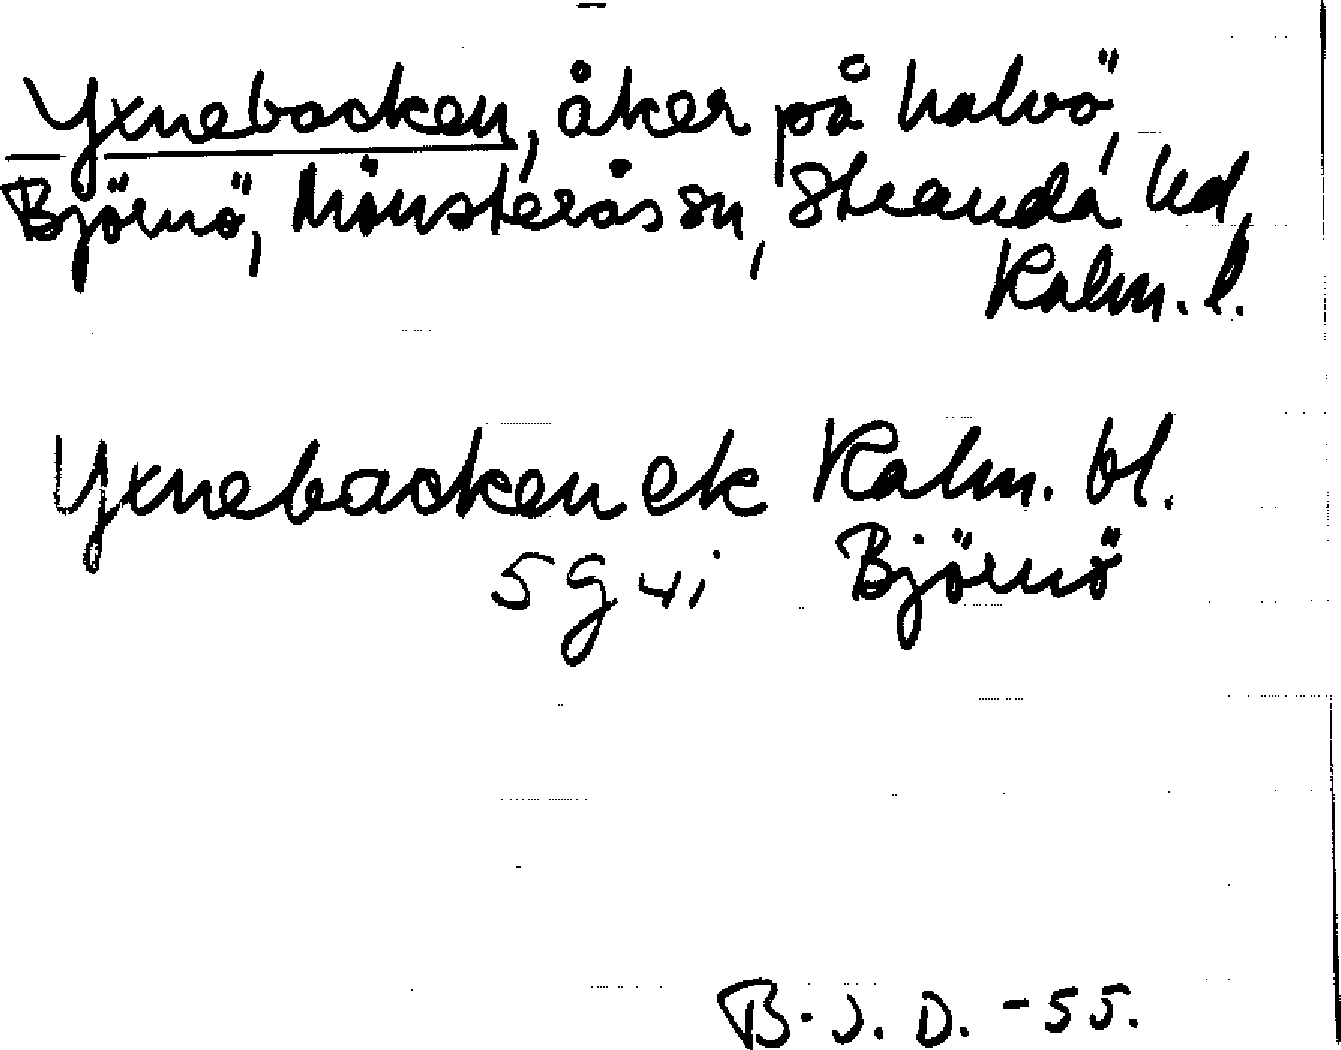 Yxnebacken, åker på halvö,
Björnö, Mönsterås sn, Stranda hd,
Kalm. l.
Yxnebacken ek Kalm. bl.
5 g 4 i Björnö
B. J. D. -55.